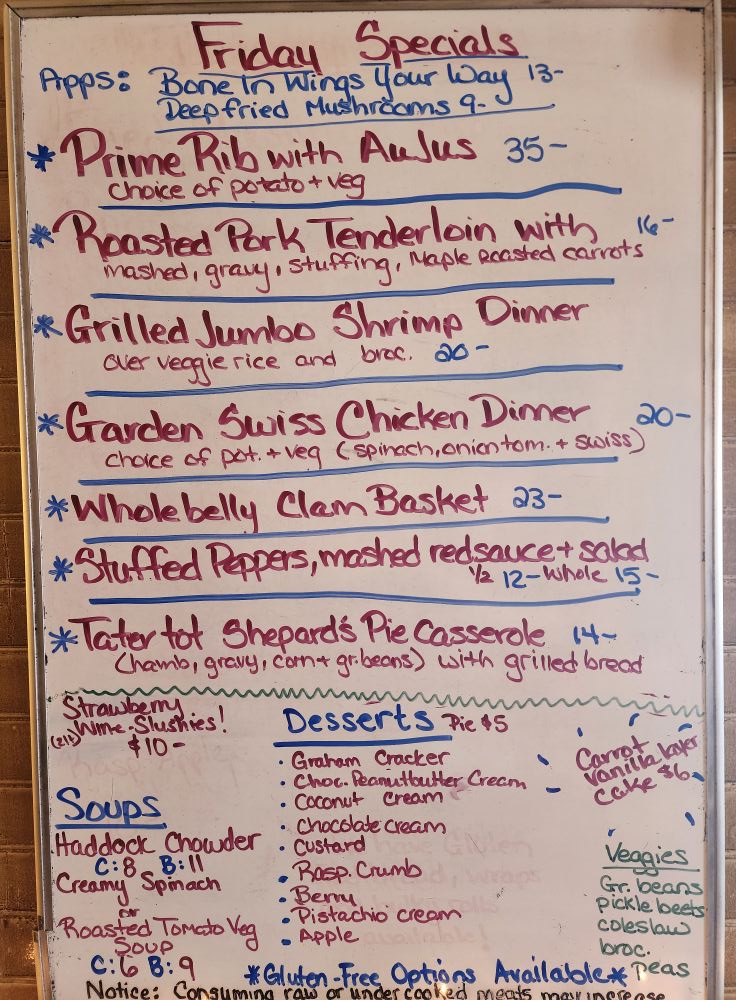 Friday Specials
Apps: Bone In Wings Your Way 13-
Deepfried Mushrooms 9-
* Prime Rib with AuJus 35-
choice of potato + veg
* Roasted Pork Tenderloin with 16-
mashed, gravy, stuffing, Maple Roasted carrots
* Grilled Jumbo Shrimp Dinner
over veggie rice and broc. 20-
* Garden Swiss Chicken Dinner 20-
choice of pot. + veg (spinach, onion tom. + swiss)
* Wholebelly Clam Basket 23-
* Stuffed Peppers, mashed redsauce + salad
1/2 12- Whole 15-
* Tater tot Shepard's Pie Casserole 14-
(hamb, gravy, corn + gr. beans) with grilled bread
Strawberry
Wine Slushies!
(21+)
$10-
Soups
Haddock Chowder
C: 8 B: 11
Creamy Spinach
or
Roasted Tomato Veg
Soup
C: 6 B: 9
Desserts Pie $5
• Graham Cracker
• Choc. Peanutbutter Cream
• Coconut cream
• Chocolate cream
• Custard
• Rasp. Crumb
• Berry
• Pistachio cream
• Apple
Carrot
vanilla layer
cake $6
Veggies
Gr. beans
pickle beets
coleslaw
broc.
peas
*Gluten-Free Options Available*
Notice: Consuming raw or undercooked meats may increase